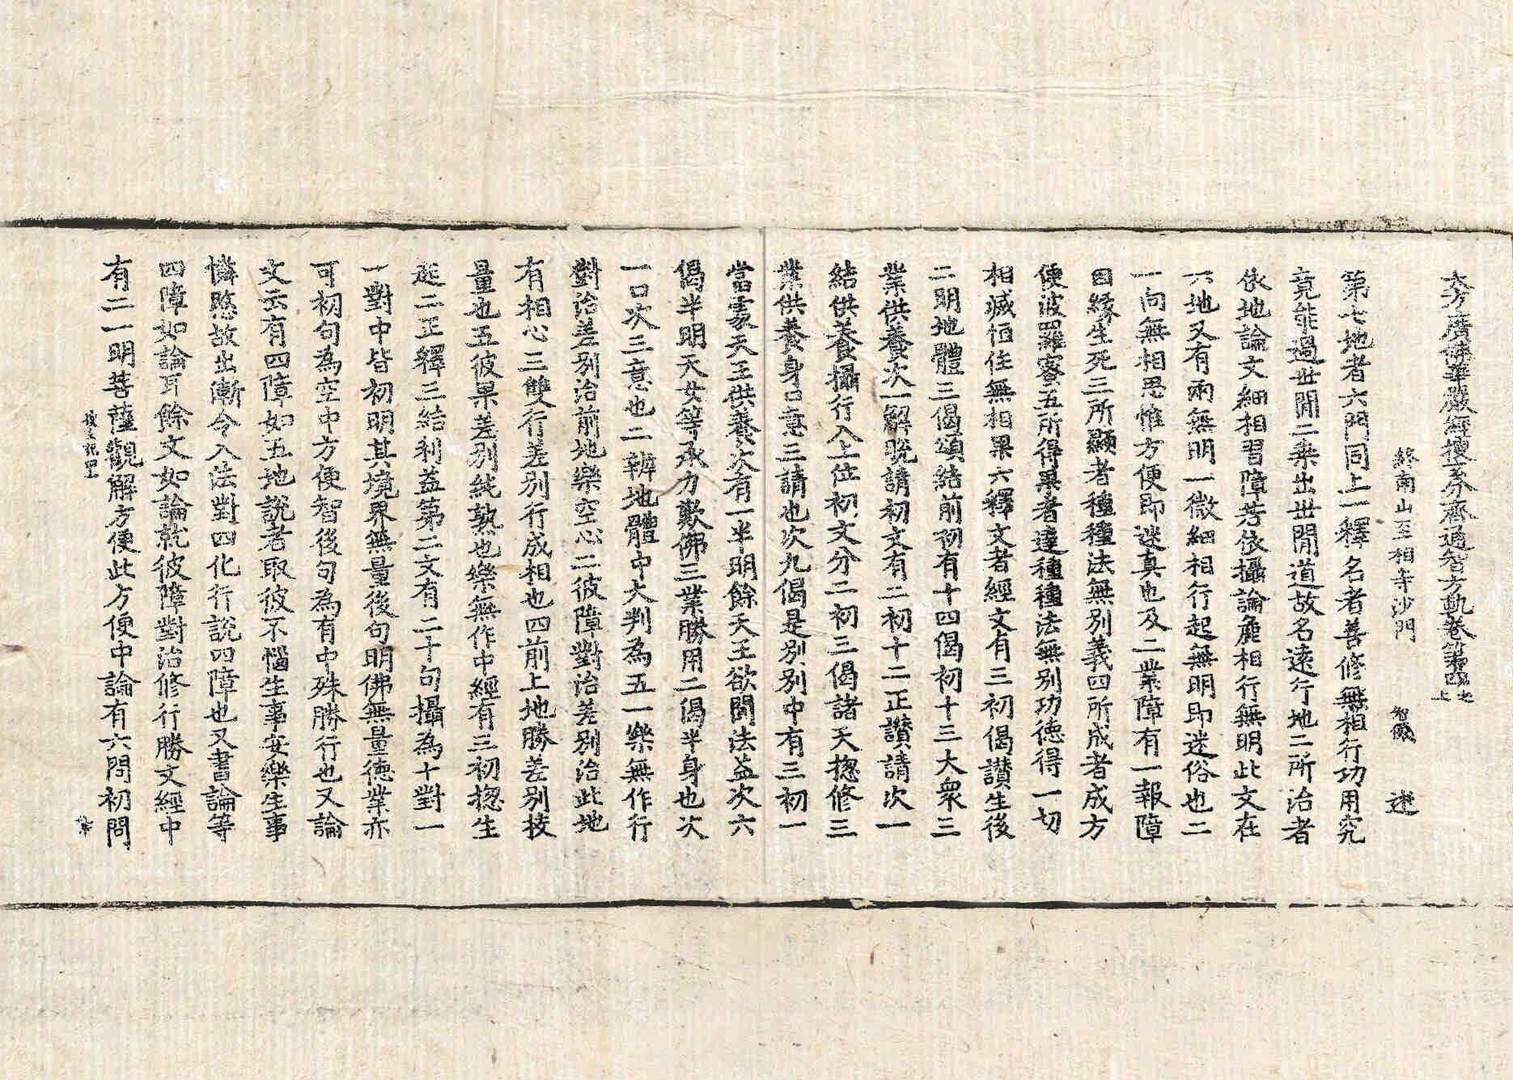 大方廣佛華嚴經搜玄分齊通智方軌卷第四之上
終南山至相寺沙門 智儼 述
第七地者六門同上一釋名者善修無相行功用究
竟能過世間二乘出世間道故名遠行地二所治者
依地論文細相習障若依攝論麁相行無明此文在
六地又有兩無明一微細相行起無明即迷俗也二
一向無相思惟方便即迷真也及二業障有一報障
因緣生死三所顯者種種法無別義四所成者成方
便波羅蜜五所得果者達種種法無別功德得一切
相滅恒住無相果六釋文者經文有三初偈讃生後
二明地體三偈頌結前初有十四偈初十三大衆三
業供養次一解脫請初文有二初十二正讃請次一
結供養攝行入上位初文分二初三偈諸天揔修三
業供養身口意三請也次九偈是別別中有三初一
當衆天王供養次有一半明餘天王欲聞法益次六
偈半明天女等承力歎佛三業勝用二偈半身也次
一口次三意也二辨地體中大判為五一樂無作行
對治差別治前地樂空心二彼障對治差別治此地
有相心三雙行差別行成相也四前上地勝差別挍
量也五彼果差別純熟也樂無作中經有三初揔生
起二正釋三結利益第二文有二十句攝為十對一
一對中皆初明其境界無量後句明佛無量德業亦
可初句為空中方便智後句為有中殊勝行也又論
文云有四障如五地說者取彼不惱生事安樂生事
憐愍故出漸令入法對四化行說四障也又書論等
四障如論耳餘文如論就彼障對治修行勝文經中
有二一明菩薩觀解方便此方便中論有六問初問